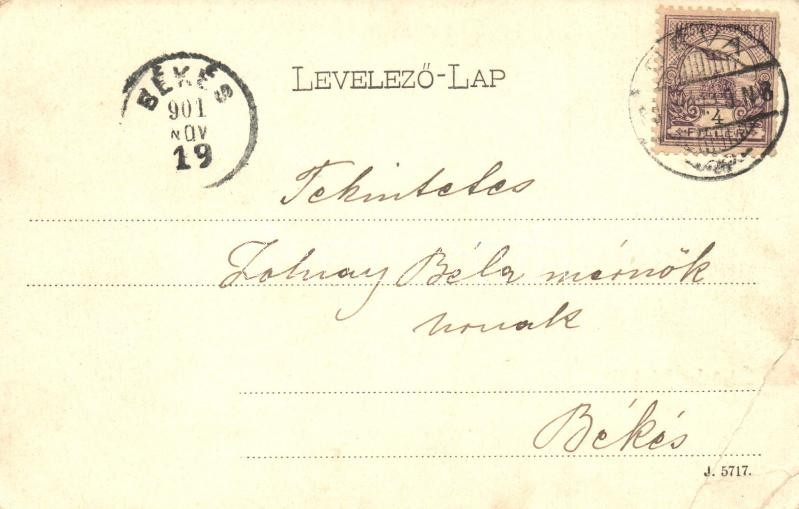 BÉKÉS
901
NOV
19
LEVELEZŐ-LAP
MAGYAR KIR. POSTA
4
FILLÉR
Tekintetes
Zolnay Béla mérnök
urnak
Békés
J. 5717.